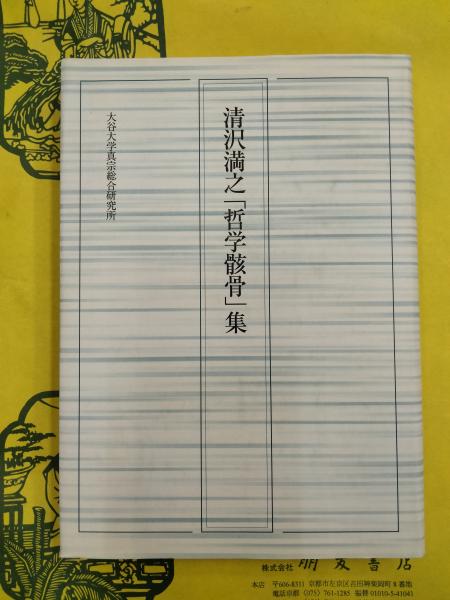 清沢満之「哲学骸骨」集
大谷大学真宗総合研究所
株式会社 朋友書店
本店 〒606-8311 京都市左京区吉田神楽岡町8番地
電話京都(075)761-1285 振替01010-5-41041